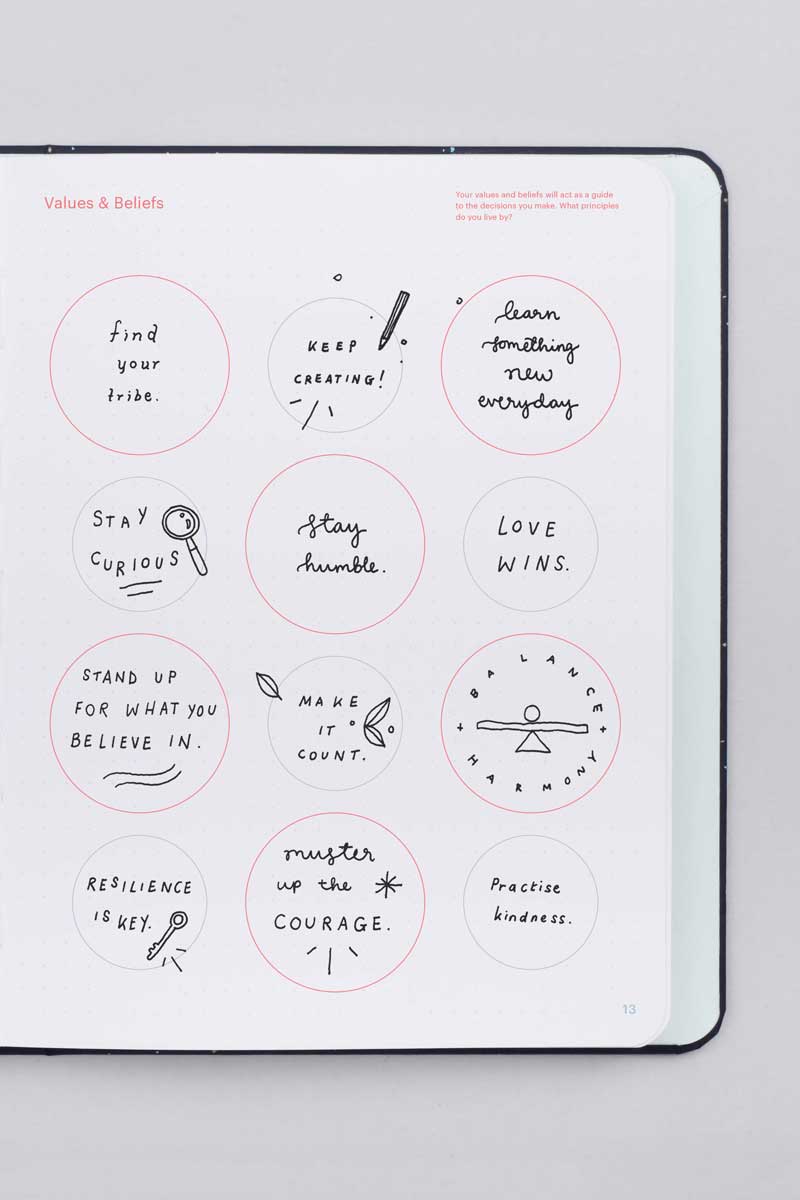 Values & Beliefs
Your values and beliefs will act as a guide
to the decisions you make. What principles
do you live by?
find
your
tribe.
KEEP
CREATING!
learn
something
new
everyday
STAY
CURIOUS
stay
humble.
LOVE
WINS.
STAND UP
FOR WHAT YOU
BELIEVE IN.
MAKE
IT
COUNT.
BALANCE
+ +
HARMONY
RESILIENCE
IS KEY.
muster
up the
COURAGE.
Practise
kindness.
13